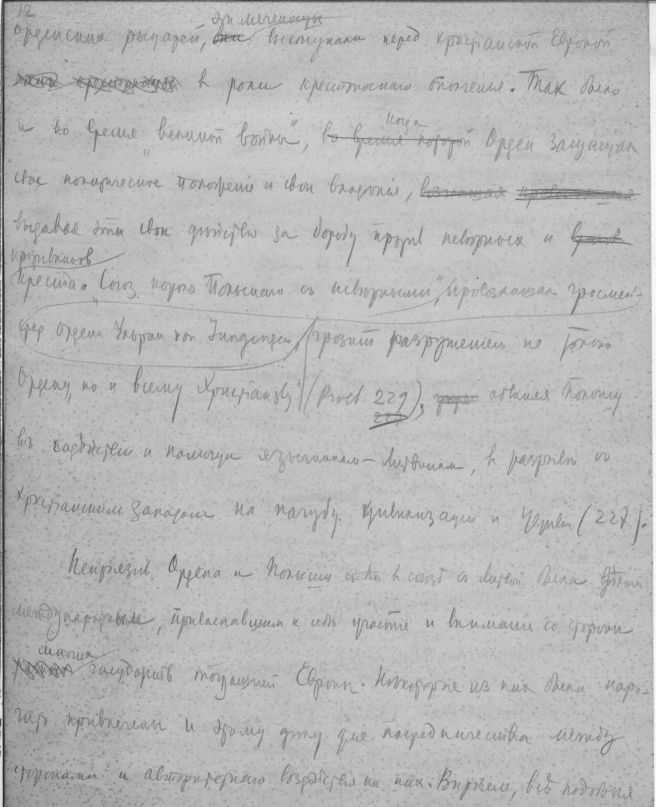 12
орденских рыцарей, эти меченосцы выступали перед христианской Европой
в роли крестоносного ополченья. Так было
и во время "великой войны", когда Орден защищал
свое политическое положение и свои владения,
выдавая эти свои действия за борьбу против неверных и
противников
креста. "Союз короля Польского с неверными", провозглашал гросмей-
стер ордена Ульрих von Jungingen, "грозит разрушением не только
Ордену, но и всему Христианству" (Proch. 229), обвиняя Польшу
в содействии и помощи язычникам-литвинам, в разрыве со
христианским Западом на пагубу цивилизации и Церкви (227).
Неприязнь Ордена и Польши в союзе с Литвой была делом
международным, привлекавшим к себе участие и внимание со стороны
многих государств тогдашней Европы. Некоторые из них были
привлечены к этому делу для посредничества между
сторонами и авторитетного воздействия на них. Впрочем, все